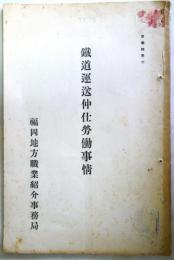 鐵道運送仲仕勞働事情
福岡地方職業紹介事務局